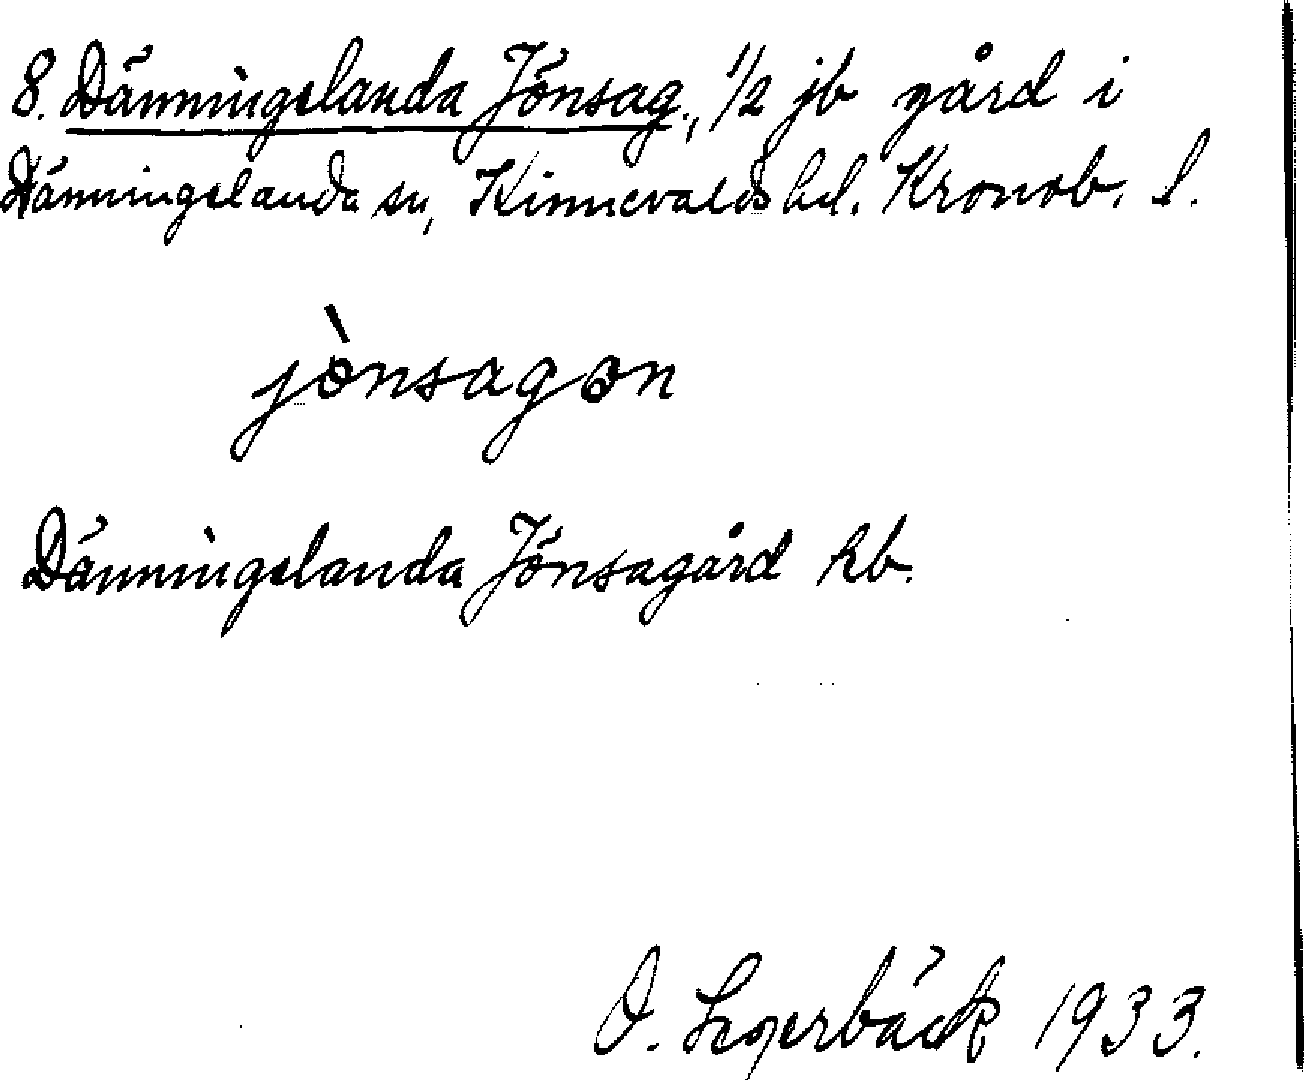 8. Dänningelanda Jönsag., 1/2 jb gård i
Dänningelanda sn, Kinnevalds hd. Kronob. l.
jònsagən
Dänningelanda Jönsagård kb.
O. Legerbäck 1933.